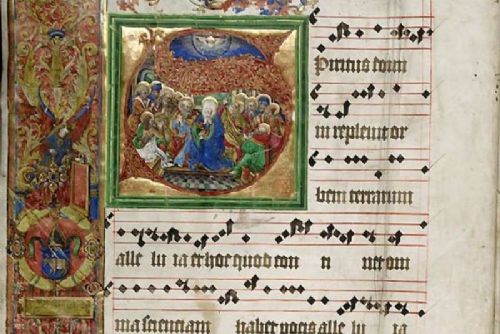 SPiritus domi
ni repleuit or
bem terrarum
alle lu ia et hoc quod con ti net om
nia scientiam habet uocis alle lu ia